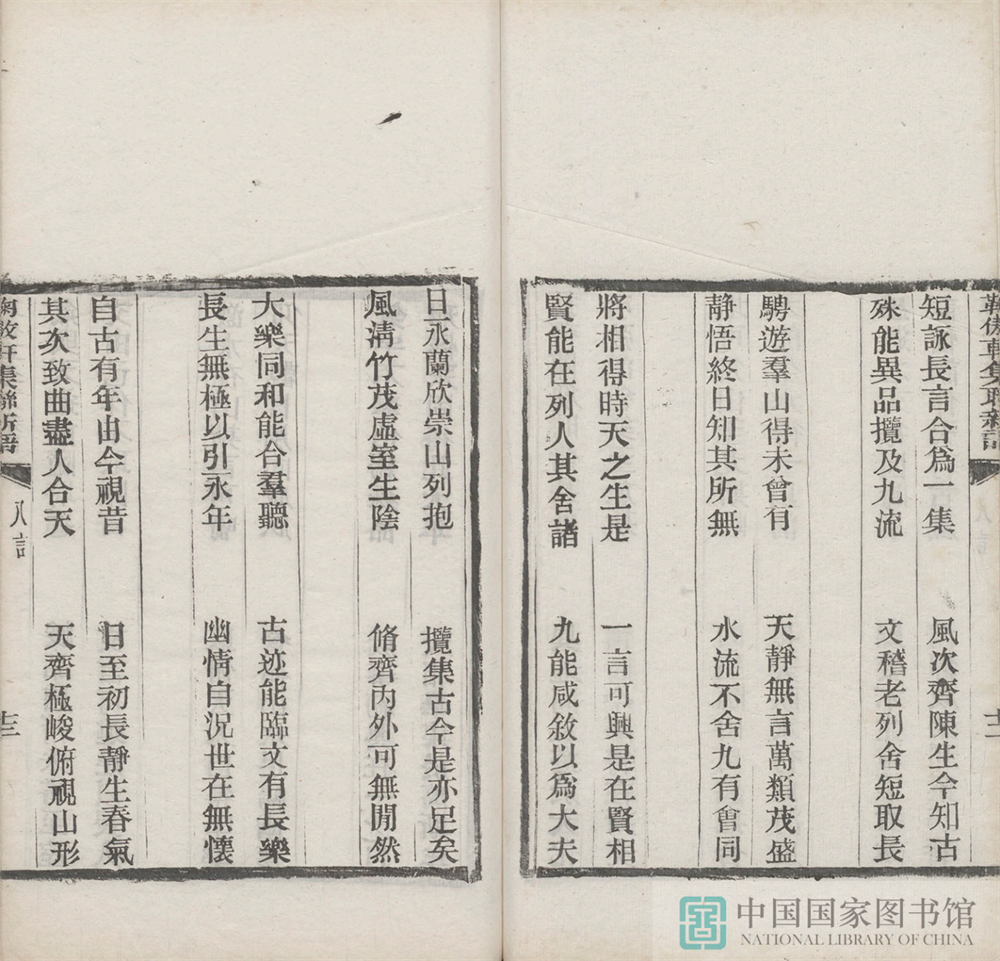 短詠長言合爲一集　風次齊陳生今知古
殊能異品攬及九流　文稽老列舍短取長
騁遊羣山得未曾有　天靜無言萬類茂盛
静悟終日知其所無　水流不舍九有會同
將相得時天之生是　一言可興是在賢相
賢能在列人其舍諸　九能咸敘以爲大夫
日永蘭欣崇山列抱　攬集古今是亦足矣
風淸竹茂虛室生陰　脩齊內外可無閒然
大樂同和能合羣聽　古迹能臨文有長樂
長生無極以引永年　幽情自況世在無懷
自古有年由今視昔　日至初長靜生春氣
其次致曲盡人合天　天齊極峻俯視山形
八言
中国国家图书馆
NATIONAL LIBRARY OF CHINA